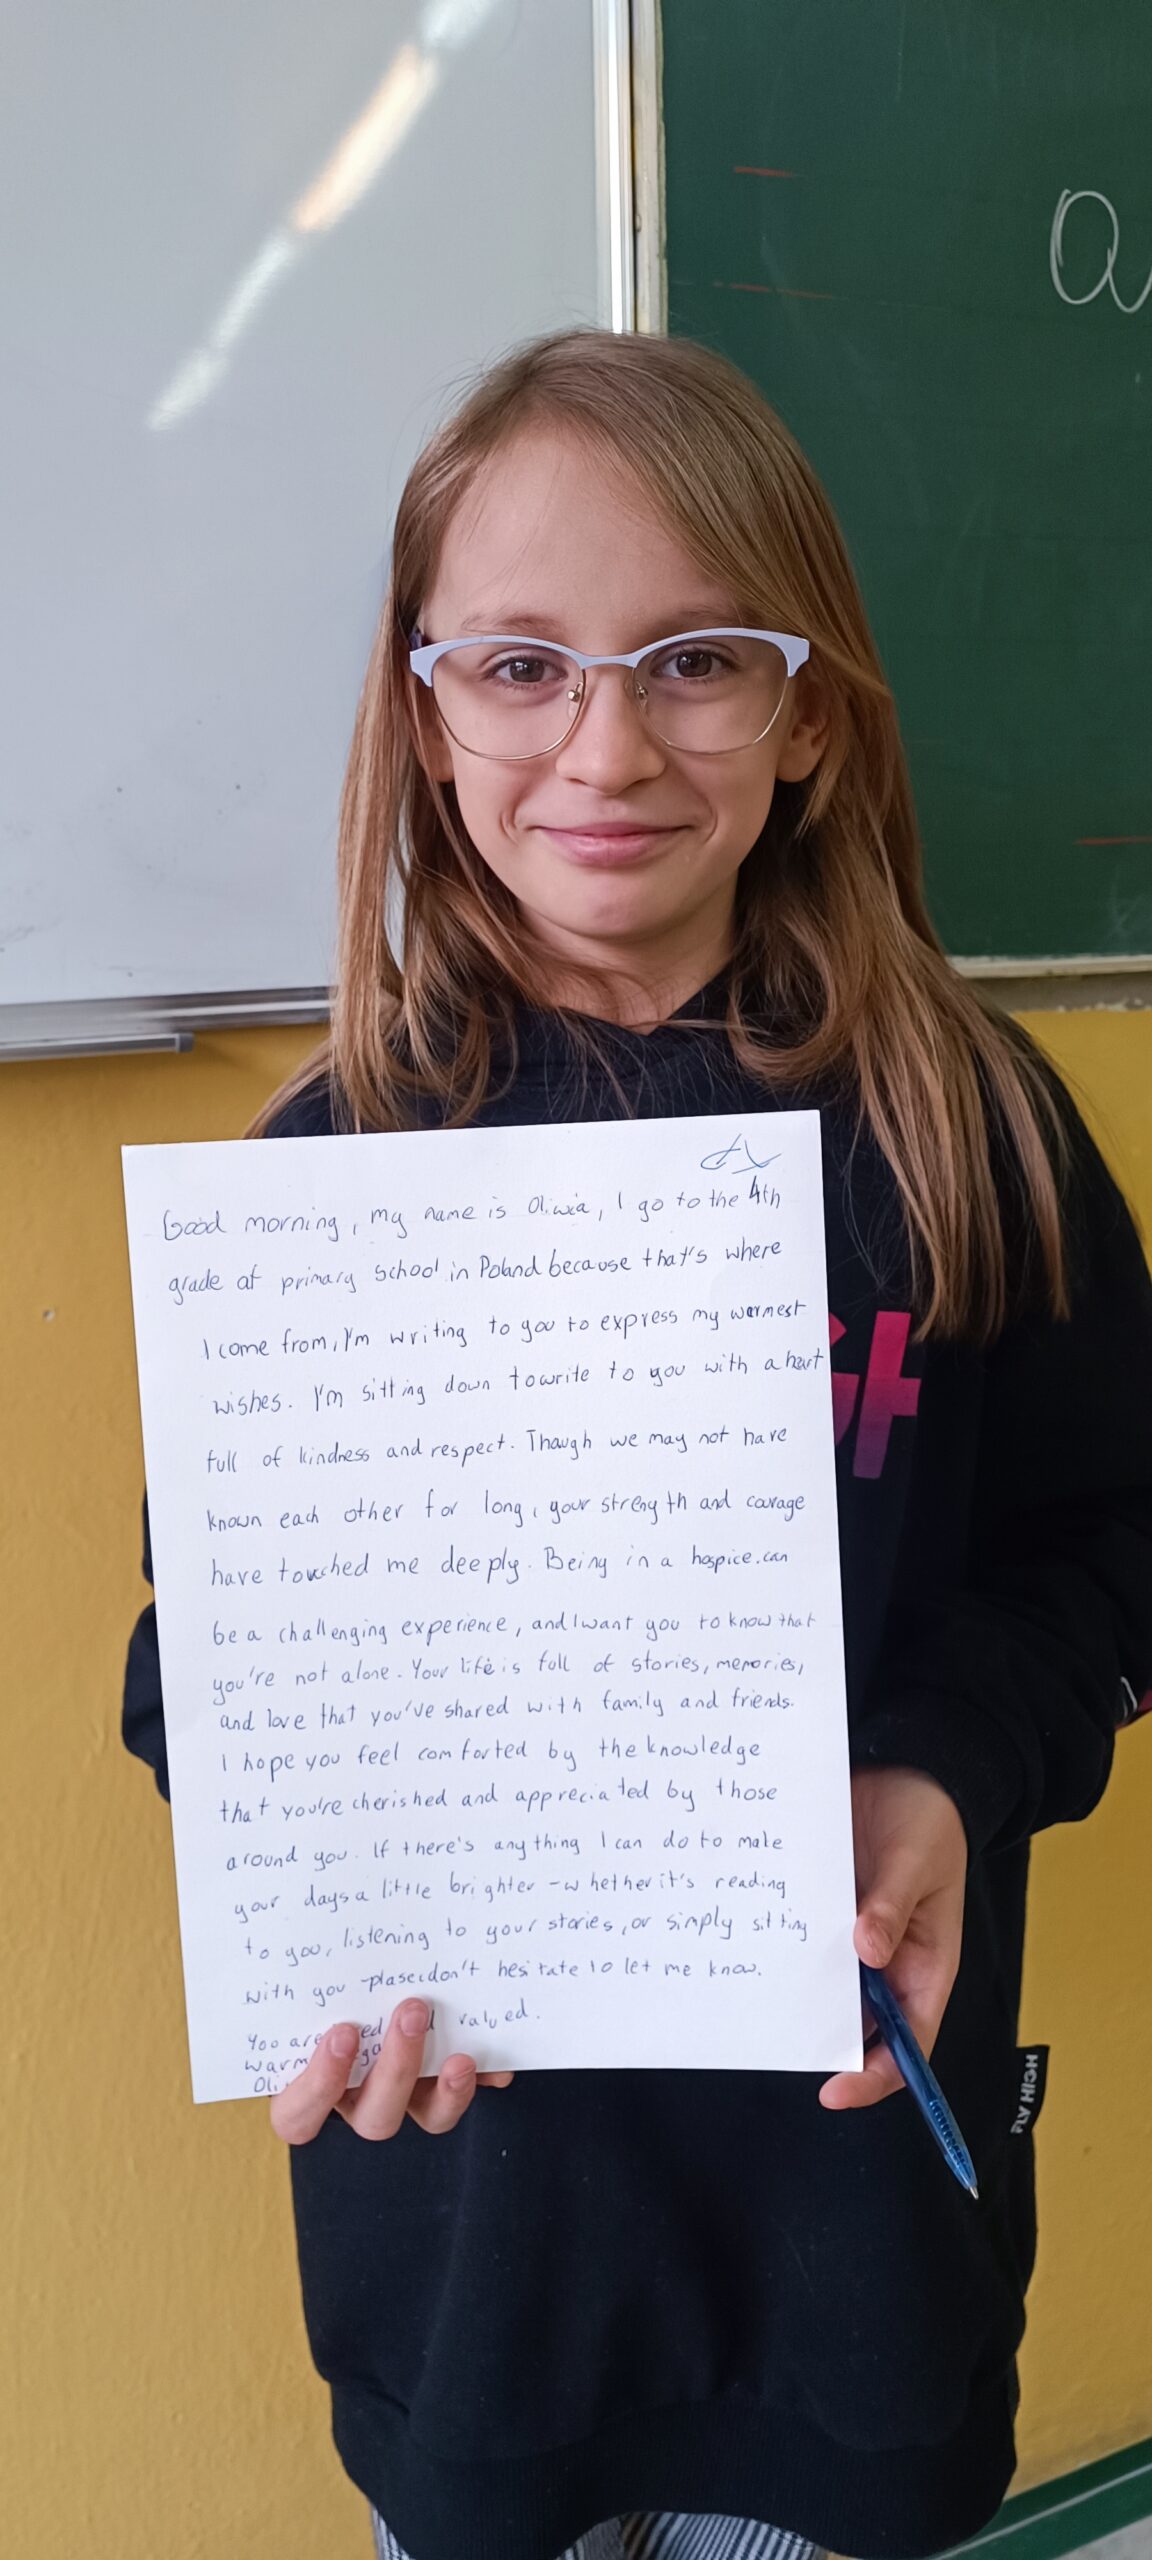 Good morning, my name is Oliwia, I go to the 4th
grade at primary school in Poland because that's where
I come from, I'm writing to you to express my warmest
wishes. I'm sitting down to write to you with a heart
full of kindness and respect. Though we may not have
known each other for long, your strength and courage
have touched me deeply. Being in a hospice can
be a challenging experience, and I want you to know that
you're not alone. Your life is full of stories, memories,
and love that you've shared with family and friends.
I hope you feel comforted by the knowledge
that you're cherished and appreciated by those
around you. If there's anything I can do to make
your days a little brighter - whether it's reading
to you, listening to your stories, or simply sitting
with you - plase don't hesitate to let me know.
You are valued.
warm
Oli
FLY HIGH
a